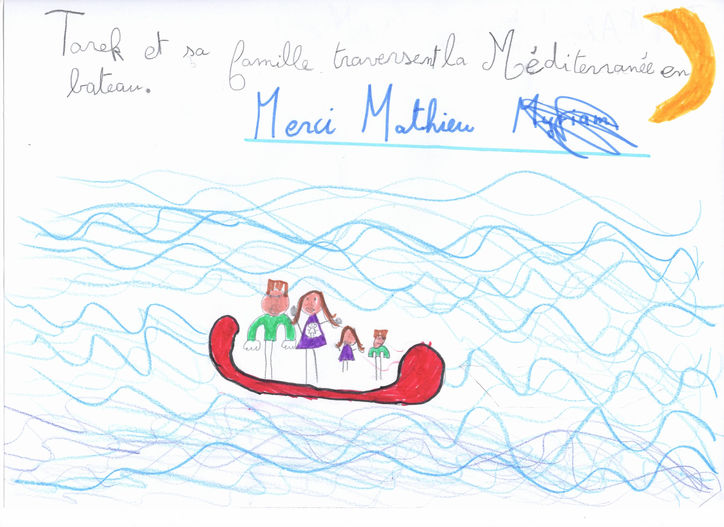 Tarek et sa famille traversent la Méditerranée en
bateau.
Merci Mathieu Myriam